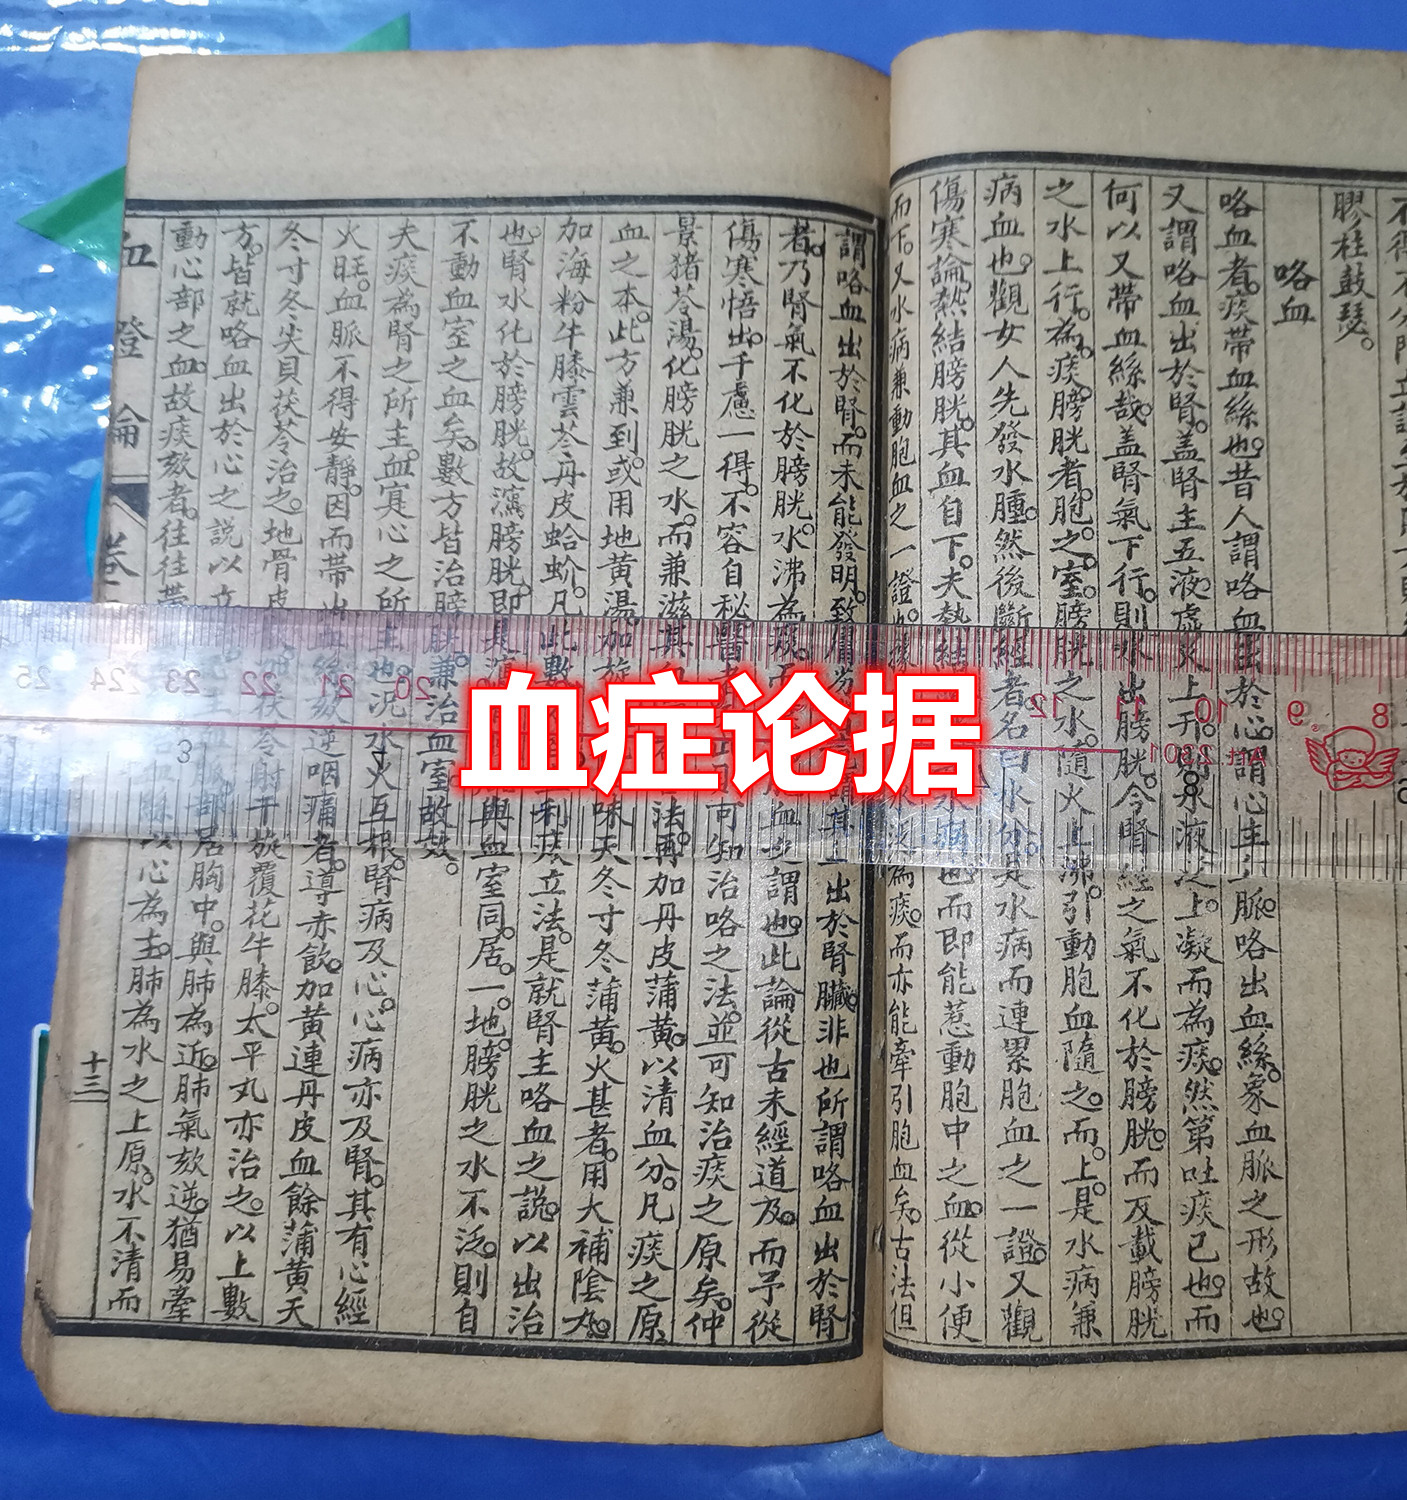 膠桂鼓瑟。
咯血
咯血者。痰帶血絲也。昔人謂咯血出於心。謂心主血脈。咯出血絲。象血脈之形故也。
又謂咯血出於腎。蓋腎主五液。虛火上升。則水液泛上。凝而為痰。然第吐痰已也。而
何以又帶血絲哉。蓋腎氣下行。則水出膀胱。今腎經之氣不化於膀胱。而反載膀胱
之水上行。為痰。膀胱者。胞之室。膀胱之水。隨火上沸。引動胞血隨之而上。是水病兼
病血也。觀女人先發水腫。然後斷經者。名曰水分。是水病而連累胞血之一證。又觀
傷寒論。熱結膀胱。其血自下。夫熱結 水病也。而即能惹動胞中之血。從小便
而下。又水病兼動胞血之一證也。據 水泛為痰。而亦能牽引胞血矣。古法但
謂咯血出於腎。而未能發明。致 謂其 出於腎臟。非也。所謂咯血出於腎
者。乃腎氣不化於膀胱。水沸為痰。而 胞血之謂也。此論從古未經道及。而予從
傷寒悟出。千慮一得。不容自秘。醫者 可知治咯之法。並可知治痰之原矣。仲
景猪苓湯。化膀胱之水。而兼滋其血 法。再加丹皮蒲黃。以清血分。凡痰之原。
血之本。此方兼到。或用地黃湯。加旋 味天冬寸冬蒲黃。火甚者。用大補陰丸。
加海粉牛膝雲苓丹皮蛤蚧。凡此數 利痰立法。是就腎主咯血之說。以出治
也。腎水化於膀胱。故瀉膀胱。即是瀉 與血室同。居一。地。膀胱之水不泛。則自
不動血室之血矣。數方皆治膀胱。兼治血室。故效。
夫痰為腎之所主。血寔心之所主也。況水火互根。腎病及心。心病亦及腎。其有心經
火旺。血脈不得安靜。因而帶出血絲。欬逆咽痛者。導赤飲。加黃連丹皮血餘蒲黃天
冬寸冬尖貝茯苓治之。地骨皮 茯苓射干旋覆花牛膝。太平丸亦治之。以上數
方。皆就咯血出於心之說以立 部居胸中。與肺為近。肺氣欬逆。猶易牽
動心部之血。故痰欬者。往往帶 心為主。肺為水之上原。水不清而
血證論
卷
十三
血症论据
25 24 23 22 21 20 12 11 10 9 8